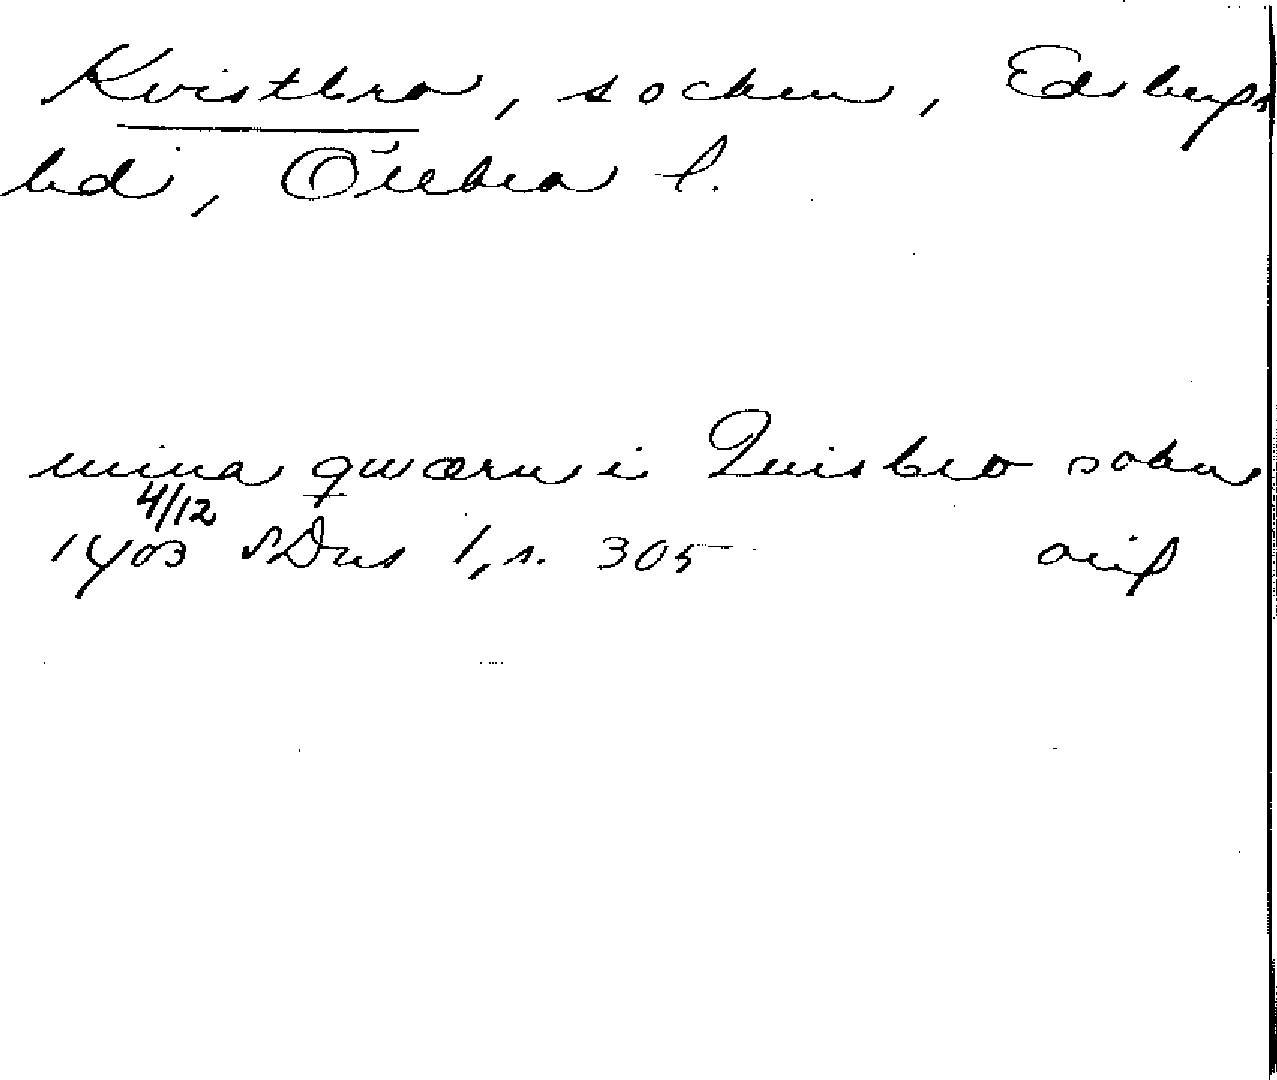 Kvistbro, socken, Edsbergs
hd, Örebro l.
mina qwærn i Quisbro sokn
4/12
1403 SDns 1, s. 305 orig